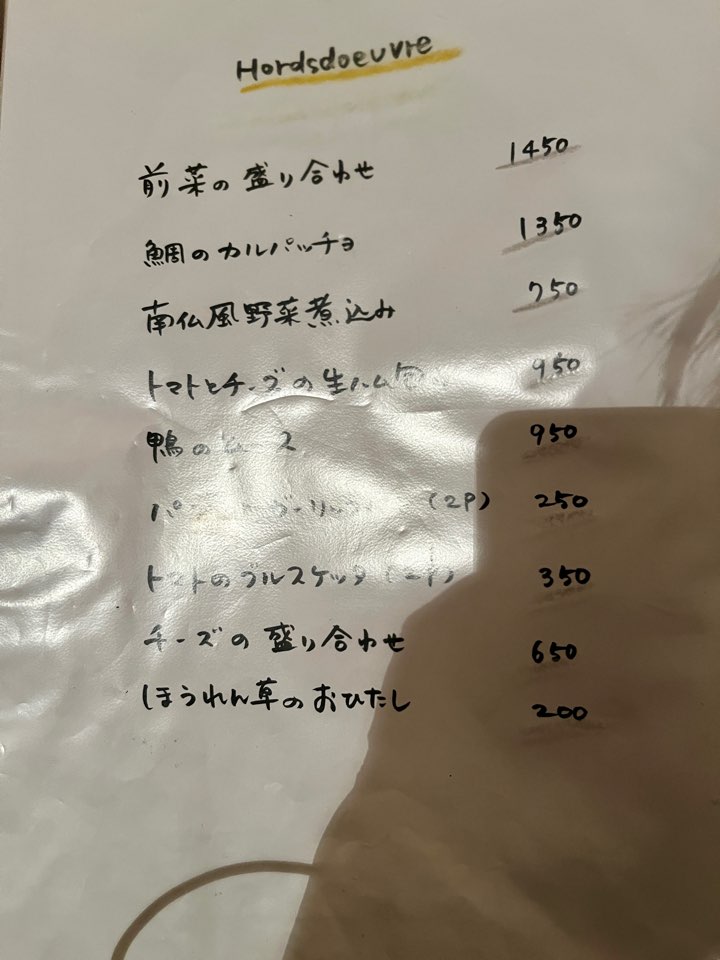 Hordsdoeuvre
前菜の盛り合わせ 1450
鯛のカルパッチョ 1350
南仏風野菜煮込み 750
トマトとチーズの生ハム 950
鴨の 950
(2P) 250
トマトのブルスケッタ (2P) 350
チーズの盛り合わせ 650
ほうれん草のおひたし 200